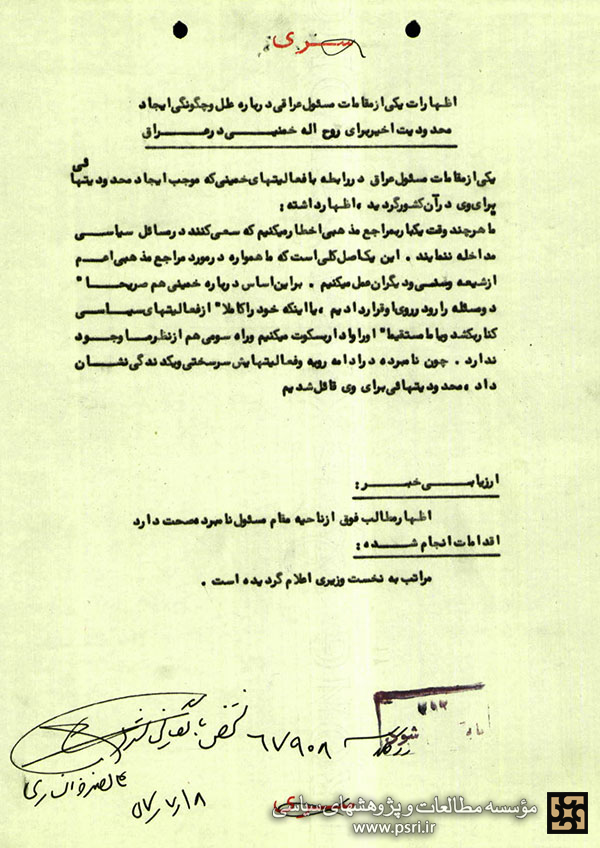 سری
اظهارات یکی از مقامات مسئول عراقی درباره علل و چگونگی ایجاد
محدودیت اخیر برای روح اله خمینی در عراق
یکی از مقامات مسئول عراق در رابطه با فعالیتهای خمینی که موجب ایجاد محدودیتهائی
برای وی در آن کشور گردید ، اظهار داشته :
ما هر چند وقت یکبار بمراجع مذهبی اخطار میکنیم که سعی کنند در مسائل سیاسی
مداخله ننمایند . این یک اصل کلی است که ما همواره در مورد مراجع مذهبی اعم
از شیعه و سنی و دیگران عمل میکنیم . بر این اساس درباره خمینی هم صریحا"
دو مسئله را رو در روی او قرار دادیم ، یا اینکه خود را کاملا" از فعالیتهای سیاسی
کنار بکشد و یا ما مستقیما" او را وادار بسکوت میکنیم و راه سومی هم از نظر ما وجود
ندارد . چون نامبرده در ادامه رویه و فعالیتهایش سرسختی و یکدندگی نشان
داد ، محدودیتهائی برای وی قائل شدیم
ارزیابی خبر :
اظهار مطالب فوق از ناحیه مقام مسئول نامبرده صحت دارد
اقدامات انجام شده :
مراتب به نخست وزیری اعلام گردیده است .
۶۷۹۰۸
۵۷٫۷٫۱۸
سری
مؤسسه مطالعات و پژوهشهای سیاسی
www.psri.ir